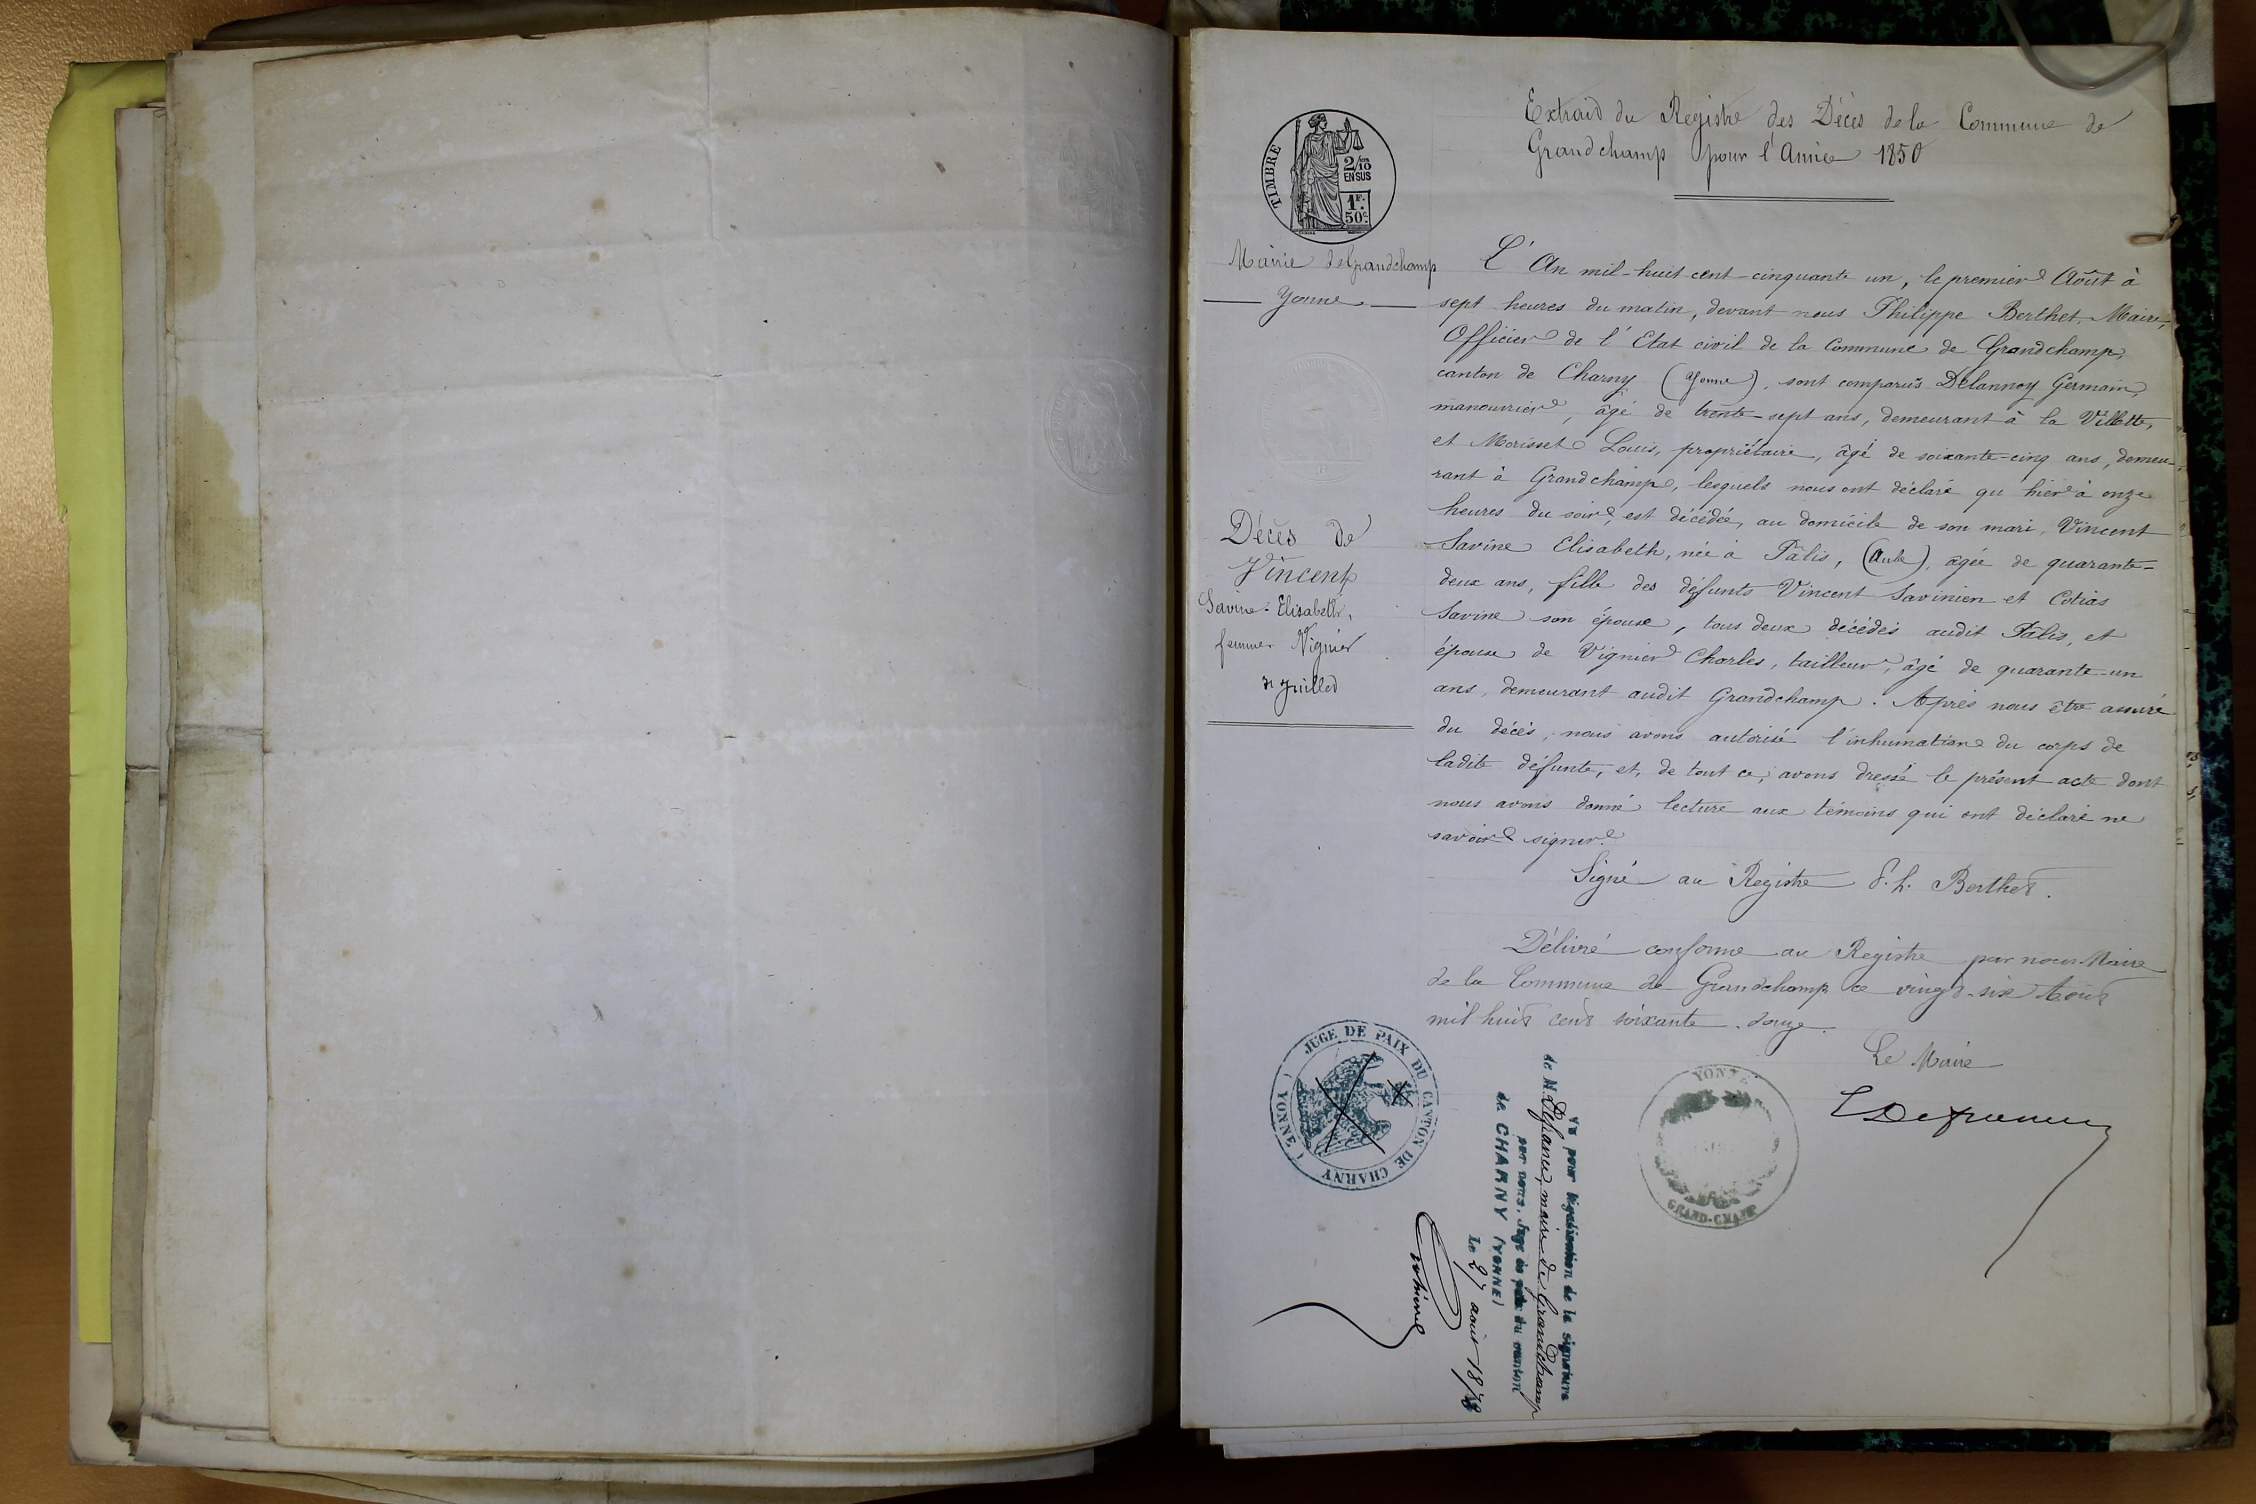 Extrait du Registre des Décès de la Commune de
Grandchamp pour l'Année 1850
TIMBRE
2/10
EN SUS
1F.
50c.
Mairie de Grandchamp
Yonne
L'An mil-huit cent-cinquante un, le premier Août à
sept heures du matin, devant nous Philippe Berthet, Maire,
Officier de l'Etat civil de la Commune de Grandchamp,
canton de Charny (Yonne), sont comparus Delannoy Germain,
manouvrier, âgé de trente-sept ans, demeurant à la Villotte,
et Morisset Louis, propriétaire, âgé de soixante-cinq ans, demeu-
rant à Grandchamp, lesquels nous ont déclaré qu'hier à onze
heures du soir, est décédée, au domicile de son mari, Vincent
Savine Elisabeth, née à Pâlis, (Aube), âgée de quarante-
deux ans, fille des défunts Vincent Savinien et Cotias
Savine son épouse, tous deux décédés audit Pâlis, et
épouse de Vignier Charles, tailleur, âgé de quarante-un
ans, demeurant audit Grandchamp. Après nous être assuré
du décès, nous avons autorisé l'inhumation du corps de
ladite défunte, et, de tout ce, avons dressé le présent acte dont
nous avons donné lecture aux témoins qui ont déclaré ne
savoir signer.
Décès de
Vincent
Savine-Elisabeth,
femme Vignier
31 Juillet
Signé au Registre P. h. Berthet.
Délivré conforme au Registre par nous Maire
de la Commune de Grandchamp ce vingt-six Août
mil huit cent soixante-
Le Maire
Defrance
JUGE DE PAIX DU CANTON DE CHARNY
(YONNE)
YONNE
GRAND-CHAMP
Vu pour légalisation de la signature
de M. Defrance, maire de Grandchamp
par nous, Juge de paix du canton
de CHARNY (YONNE)
Le 27 août 1878